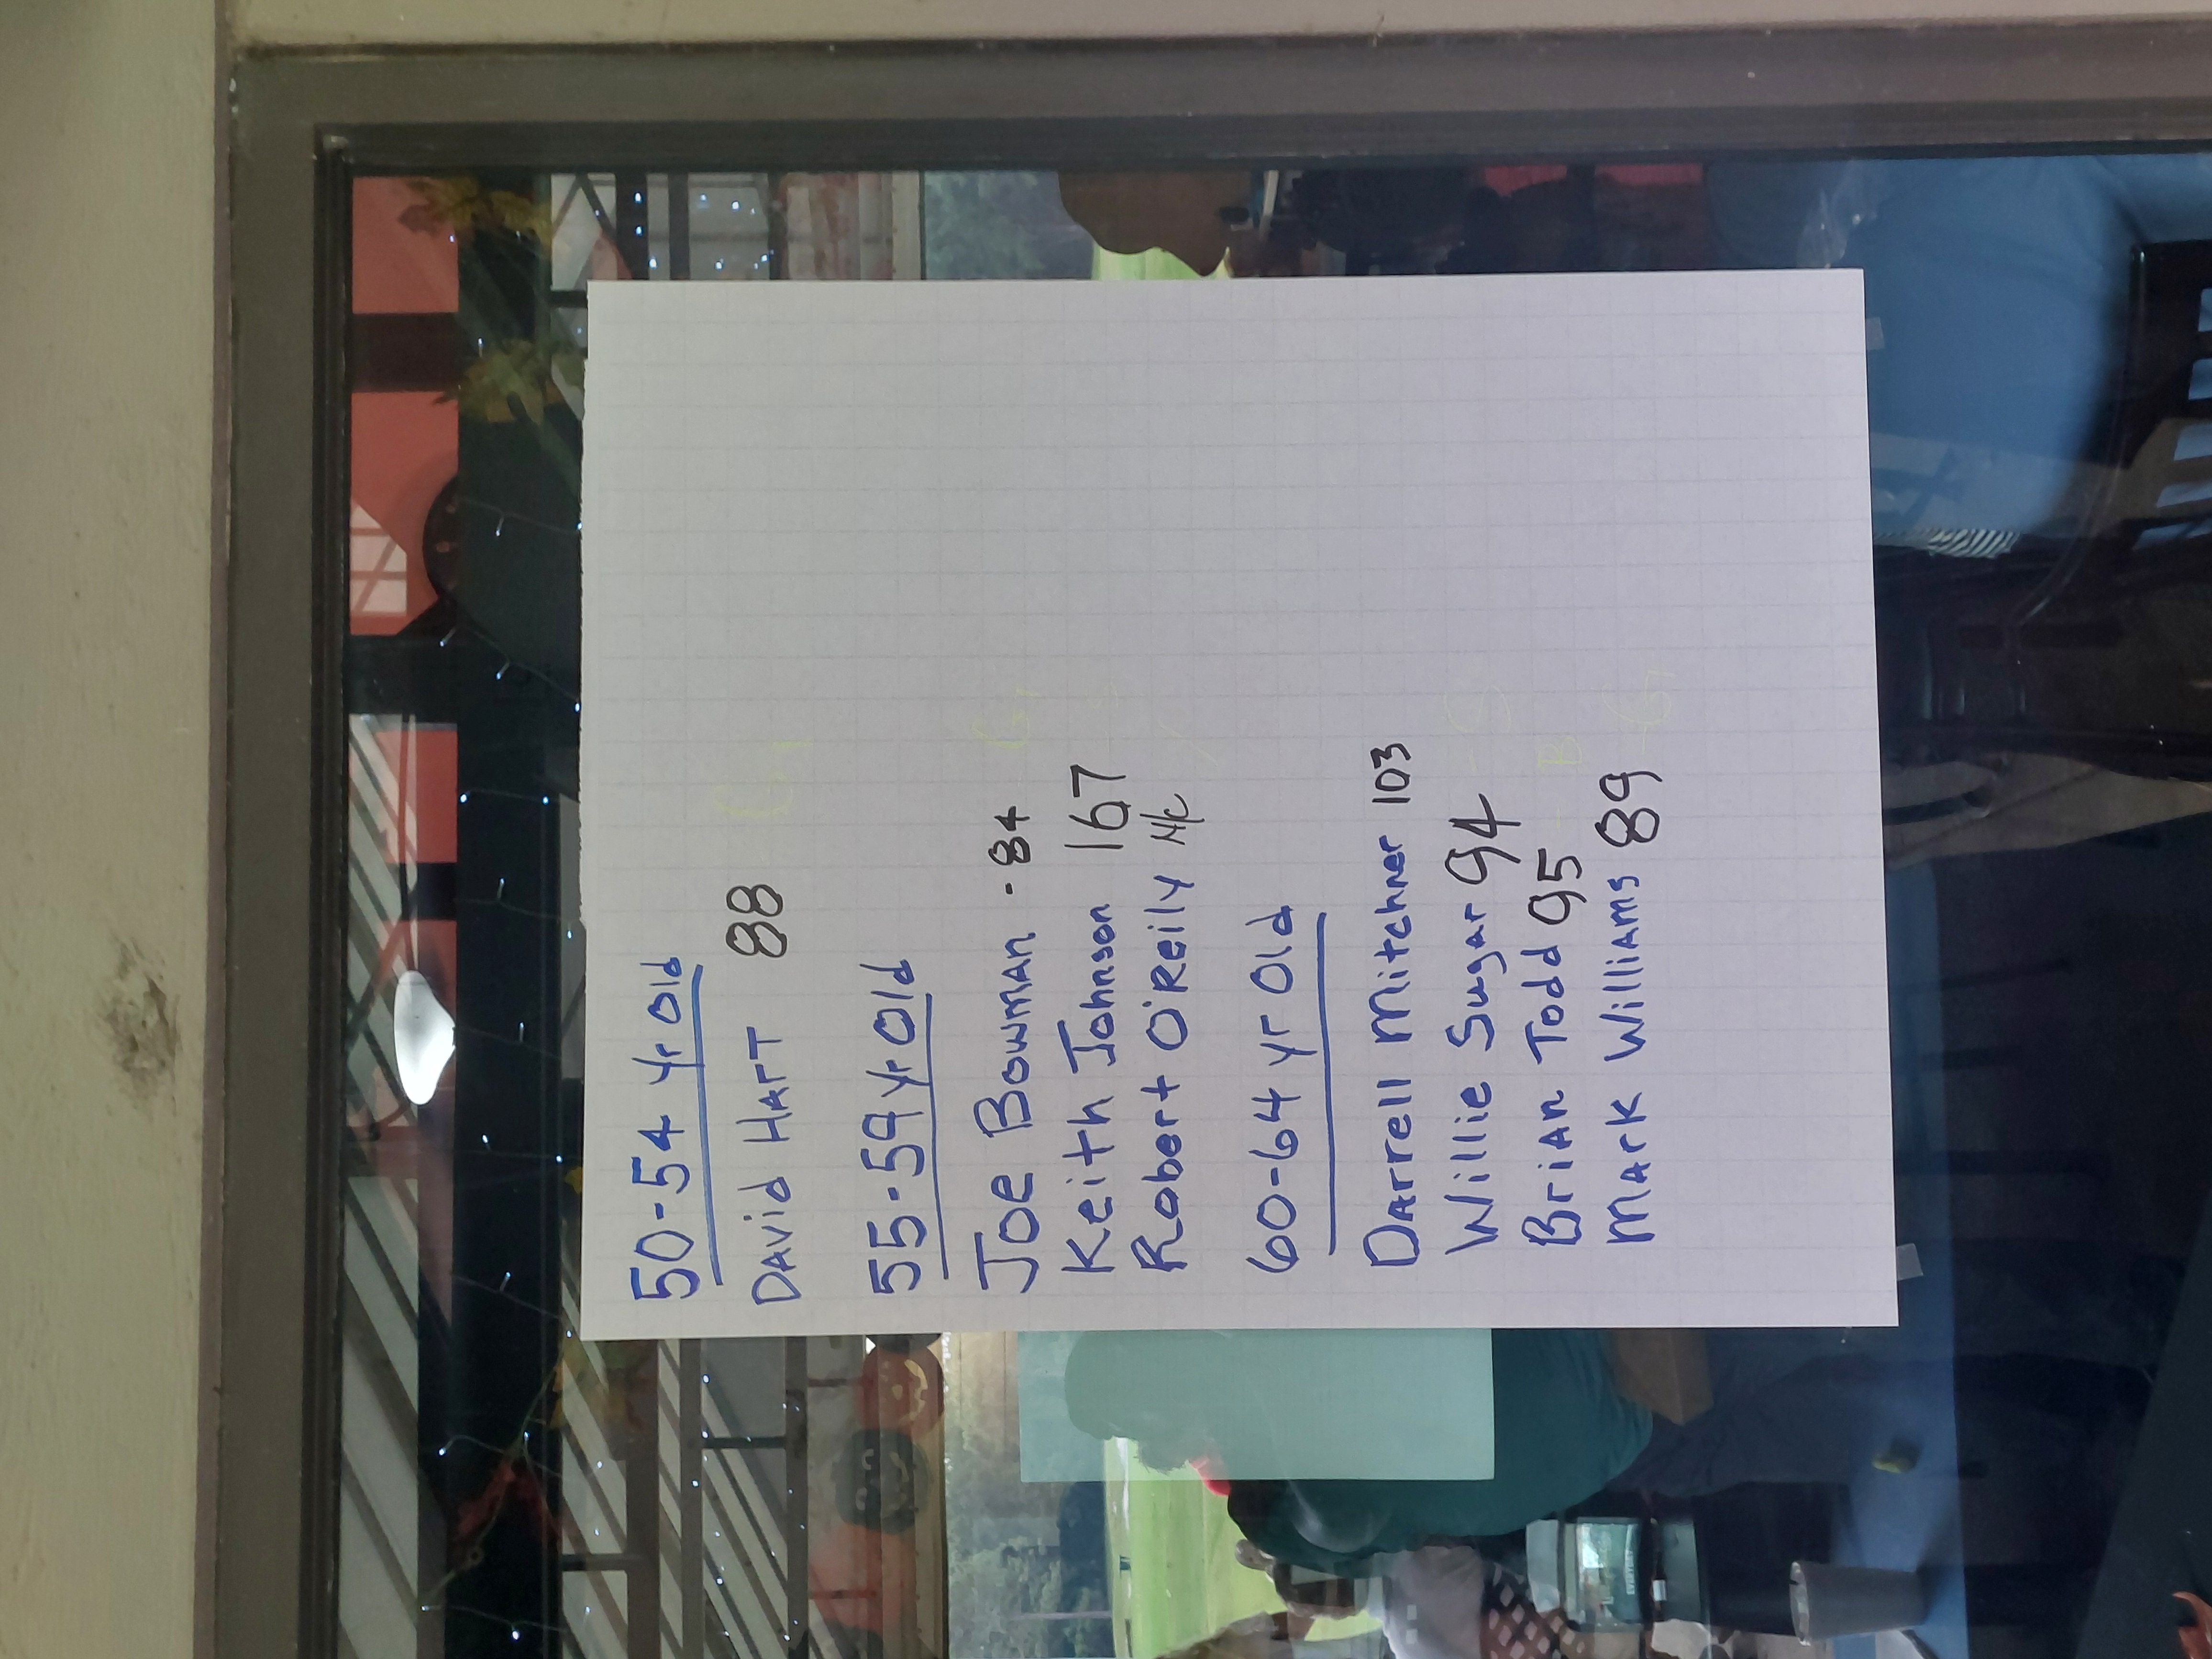 50-54 yr old
David Hart 88 G
55-59 yr old
Joe Bowman - 84 G
Keith Johnson 167 S
Robert O'Reily N/C
60-64 yr old
Darrell Mitchner 103
Willie Sugar 94 - S
Brian Todd 95 - B
Mark Williams 89 - G